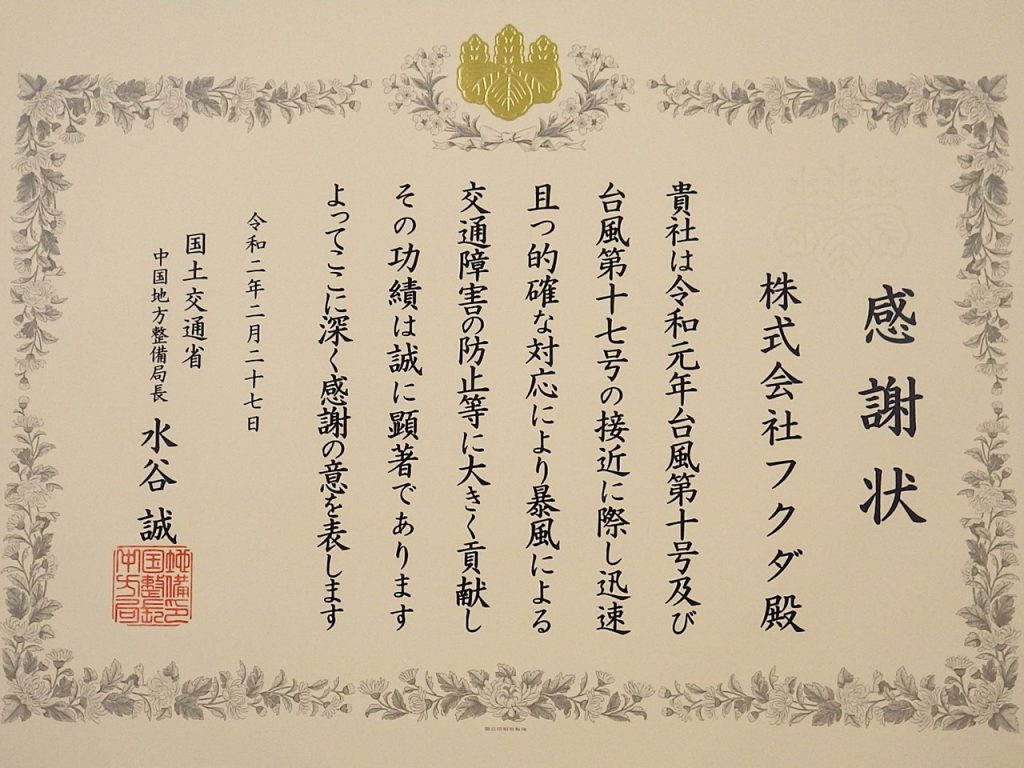 感謝状
株式会社フクダ殿
貴社は令和元年台風第十号及び
台風第十七号の接近に際し迅速
且つ的確な対応により暴風による
交通障害の防止等に大きく貢献し
その功績は誠に顕著であります
よってここに深く感謝の意を表します
令和二年二月二十七日
国土交通省
中国地方整備局長 水谷誠